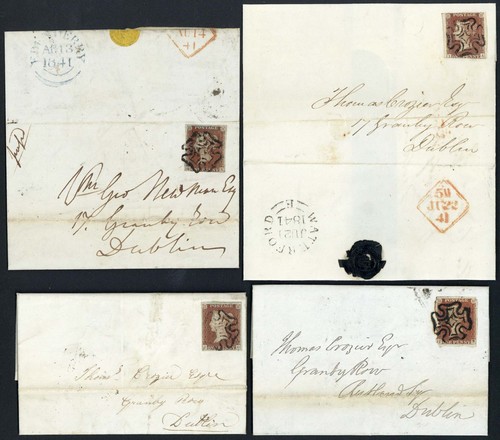 AU 13
1841
AU 14
41
Wm Geo Newman Esq
17 Granby Row
Dublin
Thomas Crozier Esq
17 Granby Row
Dublin
WATERFORD
JU 21
1841
E
JU 22
41
Thos. Crozier Esqre
Granby Row
Dublin
Thomas Crozier Esqr
Granby Row
Rutland Sqr
Dublin